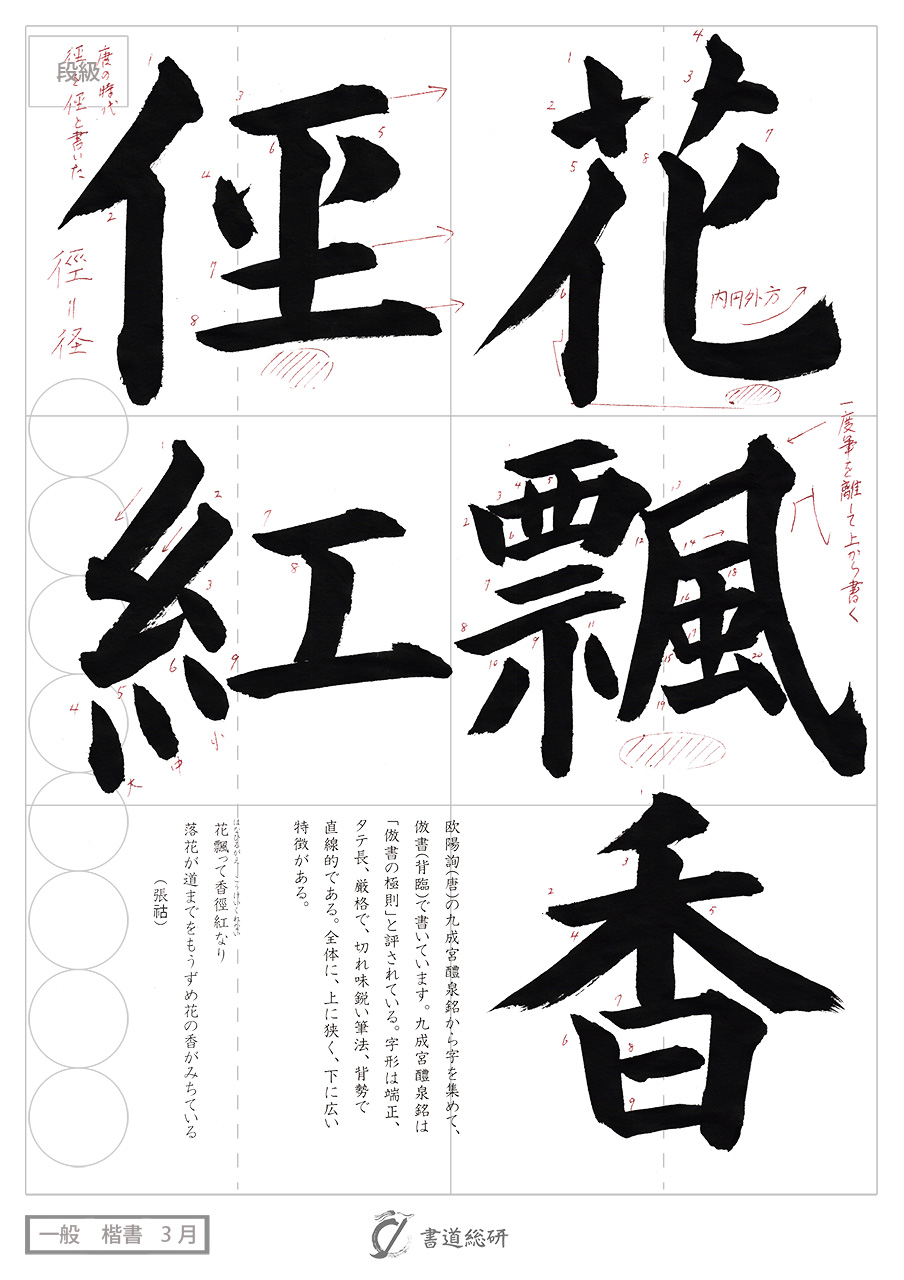 花飄香
俓紅
内円外方
一度筆を離して上から書く
唐の時代
徑を俓と書いた
徑=径
小
中
大
段級
欧陽詢(唐)の九成宮醴泉銘から字を集めて、
倣書(背臨)で書いています。九成宮醴泉銘は
「倣書の極則」と評されている。字形は端正、
タテ長、厳格で、切れ味鋭い筆法、背勢で
直線的である。全体に、上に狭く、下に広い
特徴がある。
花飄って香徑紅なり
落花が道までをもうずめ花の香がみちている
(張祜)
一般 楷書 3月
書道総研